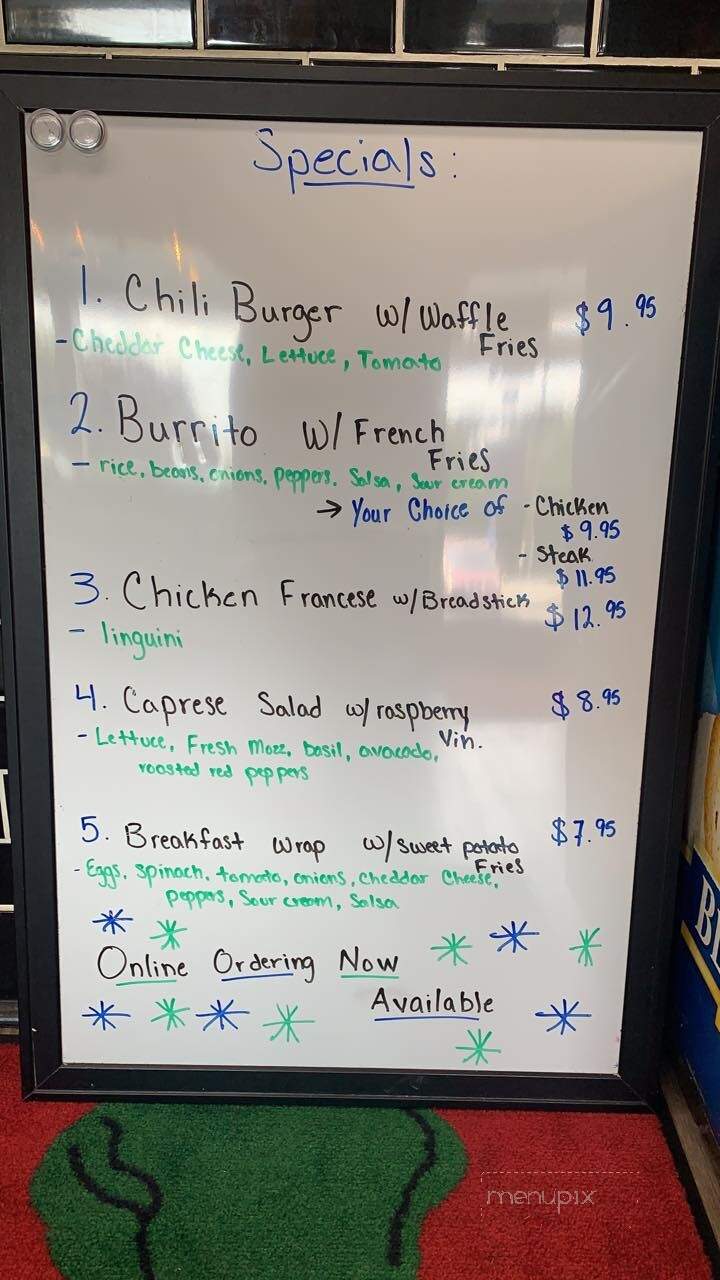 Specials:
1. Chili Burger w/ Waffle Fries $9.95
- Cheddar Cheese, Lettuce, Tomato
2. Burrito w/ French Fries
- rice, beans, onions, peppers, Salsa, Sour cream
→ Your Choice of - Chicken
$9.95
- Steak
$11.95
3. Chicken Francese w/ Breadstick $12.95
- linguini
4. Caprese Salad w/ raspberry Vin. $8.95
- Lettuce, Fresh Mozz, basil, avocado,
roasted red peppers
5. Breakfast Wrap w/ sweet potato Fries $7.95
- Eggs, Spinach, tomato, onions, Cheddar Cheese,
peppers, Sour cream, Salsa
Online Ordering Now
Available
menupix